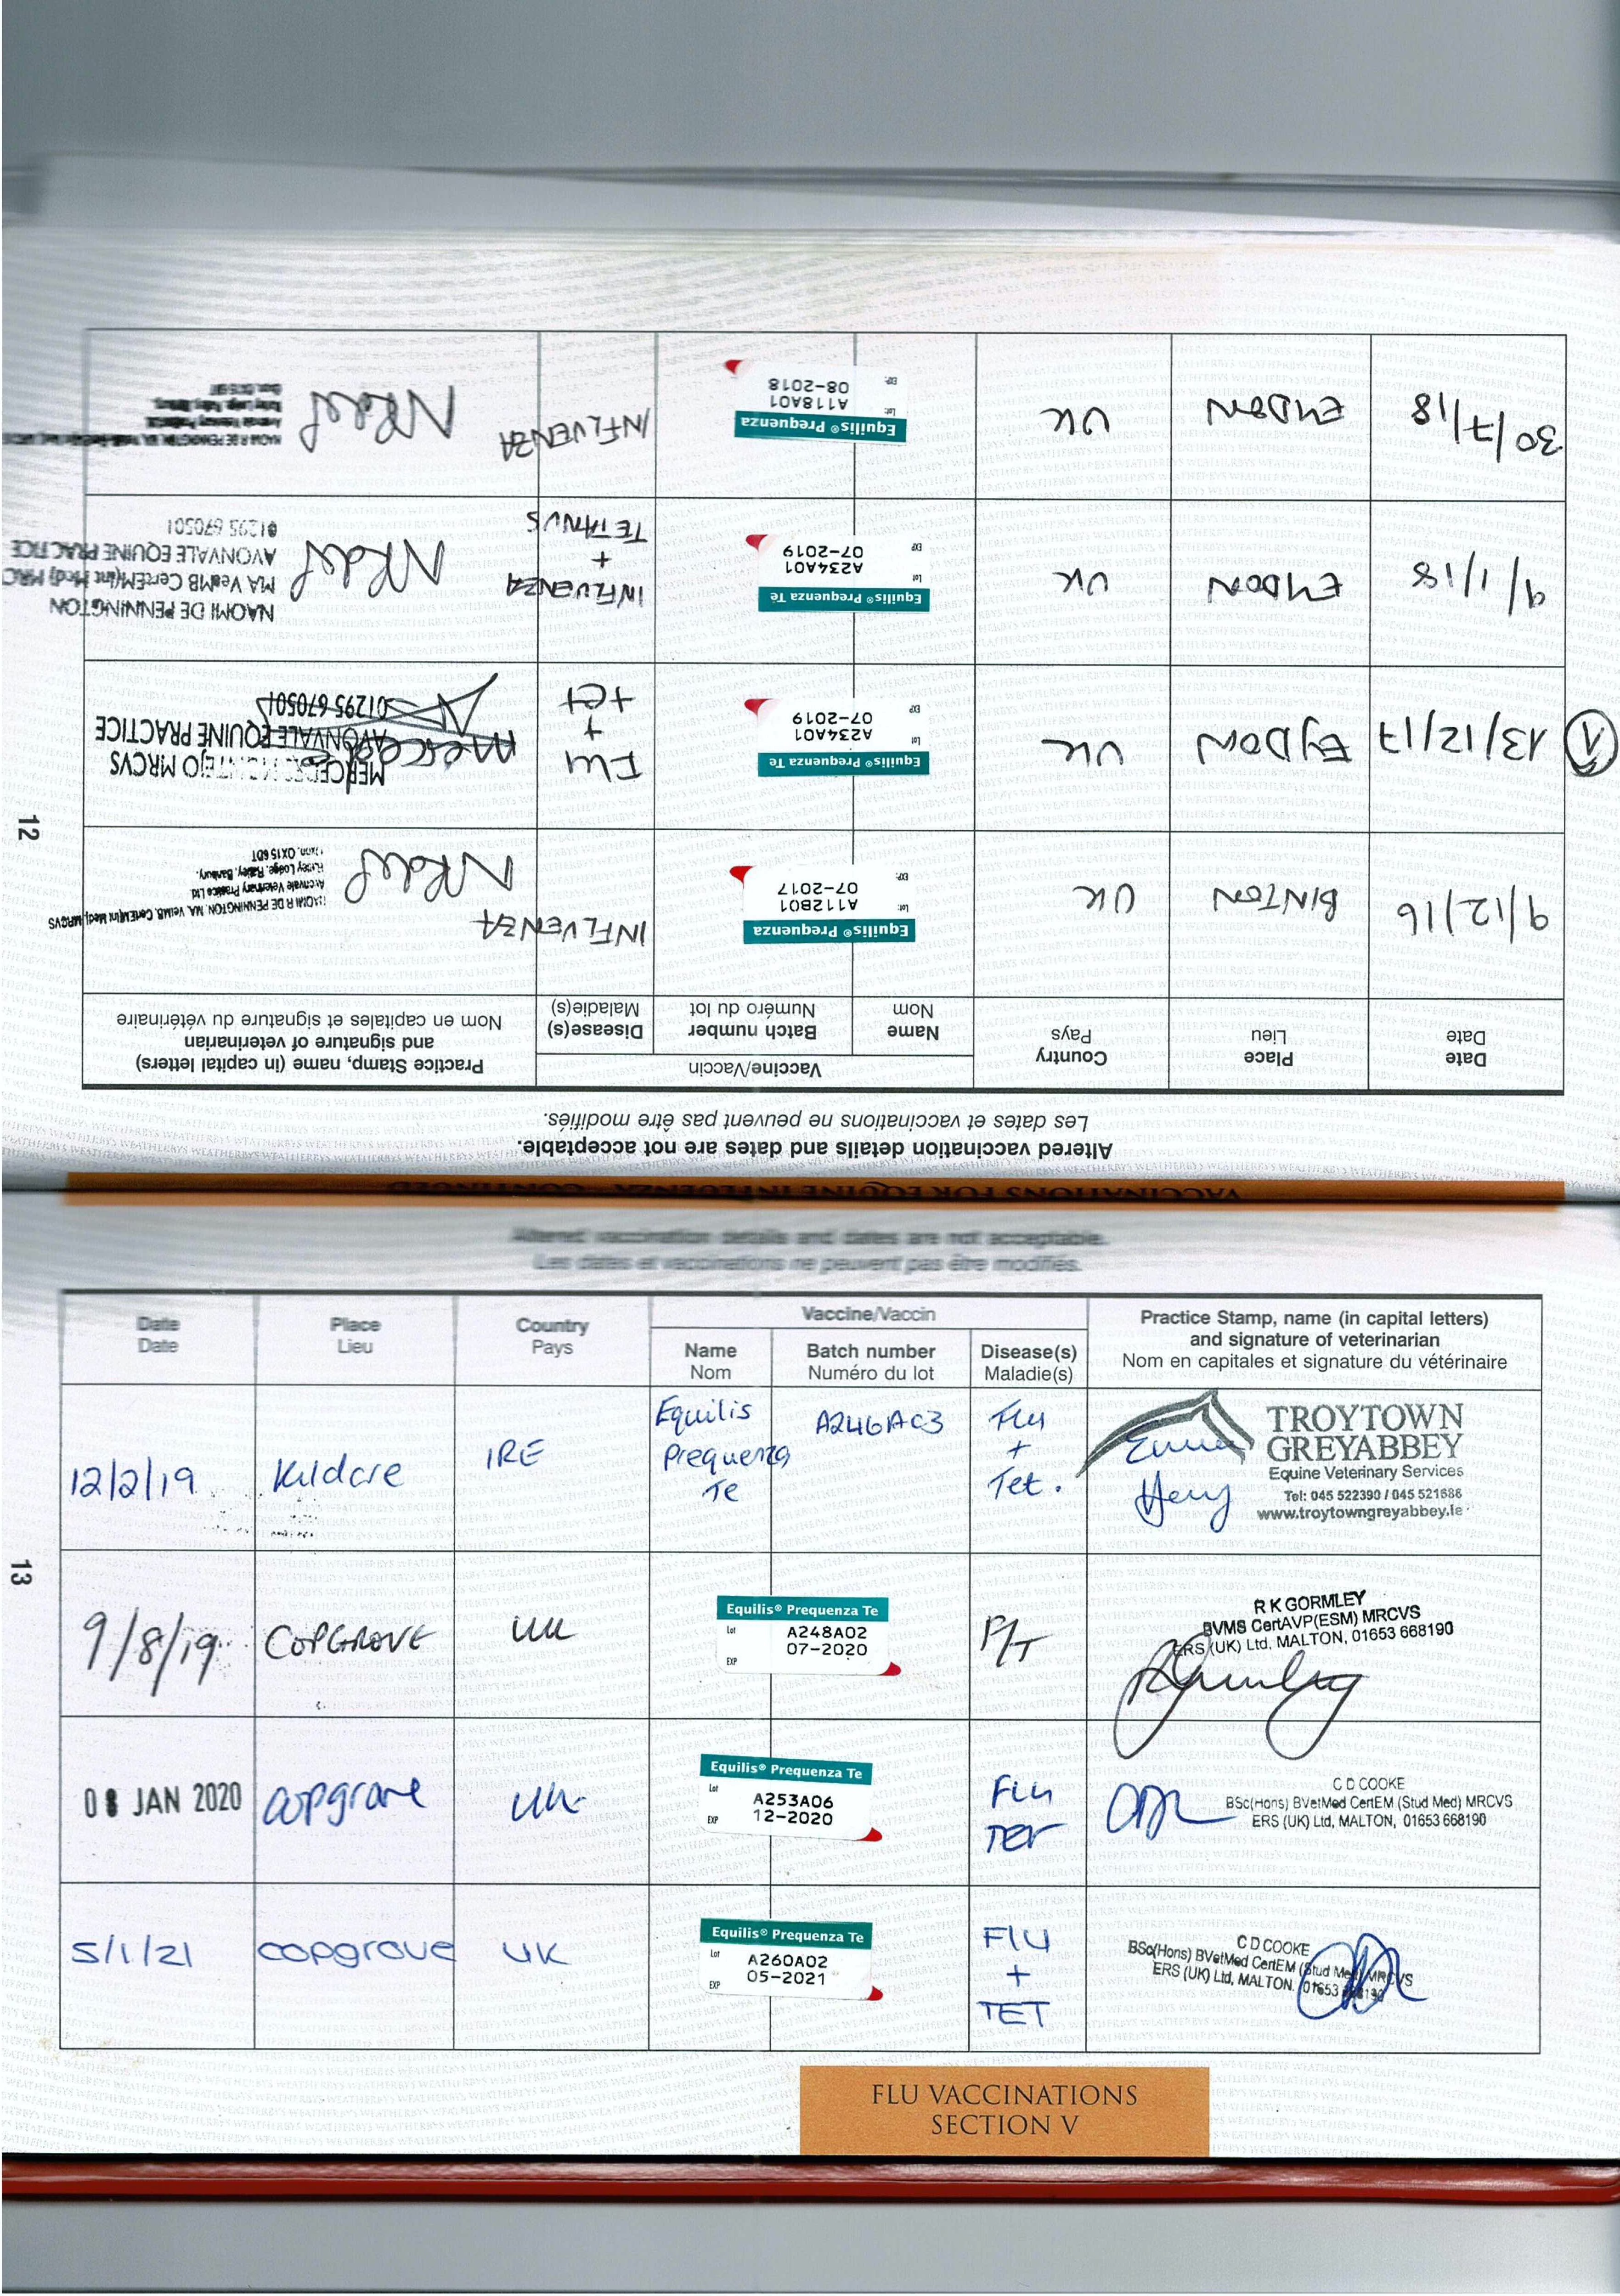 VACCINATIONS FOR EQUINE INFLUENZA - CONTINUED
Altered vaccination details and dates are not acceptable.
Les dates et vaccinations ne peuvent pas être modifiés.
Date
Date
Place
Lieu
Country
Pays
Vaccine/Vaccin
Name
Nom
Batch number
Numéro du lot
Disease(s)
Maladie(s)
Practice Stamp, name (in capital letters)
and signature of veterinarian
Nom en capitales et signature du vétérinaire
9/12/16
BINTON
UK
Equilis® Prequenza
Lot:
A112B01
EXP:
07-2017
INFLUENZA
NAOMI R DE PENNINGTON, MA, VetMB, CertEM(Int Med) MRCVS
Avonvale Veterinary Practice Ltd
Ratley Lodge, Ratley, Banbury,
Oxon. OX15 6DT
1
13/12/17
EYDON
UK
Equilis® Prequenza Te
Lot
A234A01
EXP
07-2019
Flu
+
tet
MERCEDES MONTEJO MRCVS
AVONVALE EQUINE PRACTICE
01295 670501
9/1/18
EYDON
UK
Equilis® Prequenza Te
Lot
A234A01
EXP
07-2019
INFLUENZA
+
TETANUS
NAOMI DE PENNINGTON
MA VetMB CertEM(Int Med) MRCVS
AVONVALE EQUINE PRACTICE
01295 670501
30/7/18
EYDON
UK
Equilis® Prequenza
Lot:
A118A01
EXP:
08-2018
INFLUENZA
12
Altered vaccination details and dates are not acceptable.
Les dates et vaccinations ne peuvent pas être modifiés.
Date
Date
Place
Lieu
Country
Pays
Vaccine/Vaccin
Name
Nom
Batch number
Numéro du lot
Disease(s)
Maladie(s)
Practice Stamp, name (in capital letters)
and signature of veterinarian
Nom en capitales et signature du vétérinaire
12/2/19
Kildare
IRE
Equilis
Prequenza
Te
A246AC3
Flu
+
Tet.
Emma
Henry
TROYTOWN
GREYABBEY
Equine Veterinary Services
Tel: 045 522390 / 045 521686
www.troytowngreyabbey.ie
9/8/19
COPGROVE
UK
Equilis® Prequenza Te
Lot
A248A02
07-2020
EXP
P/T
R K GORMLEY
BVMS CertAVP(ESM) MRCVS
ERS (UK) Ltd, MALTON, 01653 668190
08 JAN 2020
Copgrove
UK
Equilis® Prequenza Te
Lot
A253A06
EXP
12-2020
FLU
TET
C D COOKE
BSc(Hons) BVetMed CertEM (Stud Med) MRCVS
ERS (UK) Ltd, MALTON, 01653 668190
5/1/21
copgrove
UK
Equilis® Prequenza Te
Lot
A260A02
EXP
05-2021
FLU
+
TET
C D COOKE
BSc(Hons) BVetMed CertEM (Stud Med) MRCVS
ERS (UK) Ltd, MALTON, 01653 668190
13
FLU VACCINATIONS
SECTION V